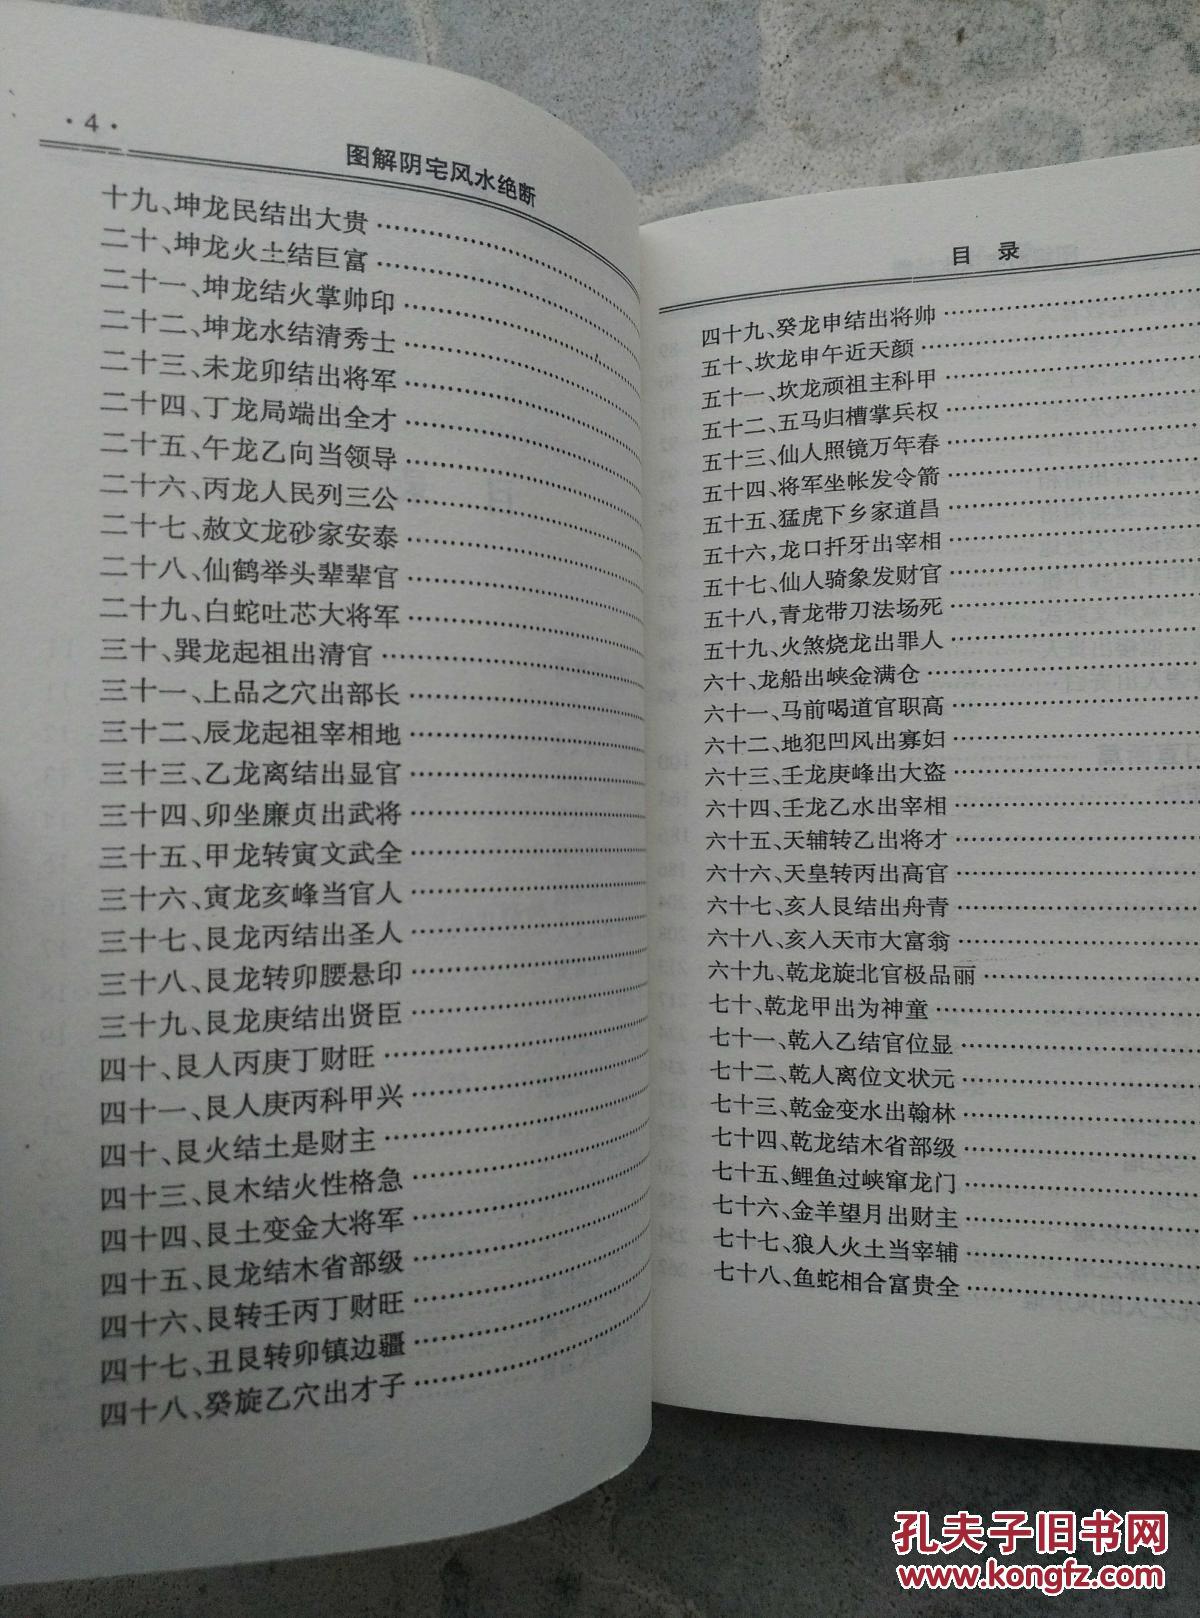 ·4·
图解阴宅风水绝断
十九、坤龙民结出大贵
二十、坤龙火土结巨富
二十一、坤龙结火掌帅印
二十二、坤龙水结清秀士
二十三、未龙卯结出将军
二十四、丁龙局端出全才
二十五、午龙乙向当领导
二十六、丙龙人民列三公
二十七、赦文龙砂家安泰
二十八、仙鹤举头辈辈官
二十九、白蛇吐芯大将军
三十、巽龙起祖出清官
三十一、上品之穴出部长
三十二、辰龙起祖宰相地
三十三、乙龙离结出显官
三十四、卯坐廉贞出武将
三十五、甲龙转寅文武全
三十六、寅龙亥峰当官人
三十七、艮龙丙结出圣人
三十八、艮龙转卯腰悬印
三十九、艮龙庚结出贤臣
四十、艮人丙庚丁财旺
四十一、艮人庚丙科甲兴
四十、艮火结土是财主
四十三、艮木结火性格急
四十四、艮土变金大将军
四十五、艮龙结木省部级
四十六、艮转壬丙丁财旺
四十七、丑艮转卯镇边疆
四十八、癸旋乙穴出才子
目 录
四十九、癸龙申结出将帅
五十、坎龙申午近天颜
五十一、坎龙顽祖主科甲
五十二、五马归槽掌兵权
五十三、仙人照镜万年春
五十四、将军坐帐发令箭
五十五、猛虎下乡家道昌
五十六,龙口扦牙出宰相
五十七、仙人骑象发财官
五十八,青龙带刀法场死
五十九、火煞烧龙出罪人
六十、龙船出峡金满仓
六十一、马前喝道官职高
六十二、地犯凹风出寡妇
六十三、壬龙庚峰出大盗
六十四、壬龙乙水出宰相
六十五、天辅转乙出将才
六十六、天皇转丙出高官
六十七、亥人艮结出舟青
六十八、亥人天市大富翁
六十九、乾龙旋北官极品丽
七十、乾龙甲出为神童
七十一、乾人乙结官位显
七十二、乾人离位文状元
七十三、乾金变水出翰林
七十四、乾龙结木省部级
七十五、鲤鱼过峡窜龙门
七十六、金羊望月出财主
七十七、狼人火土当宰辅
七十八、鱼蛇相合富贵全
孔夫子旧书网
www.kongfz.com